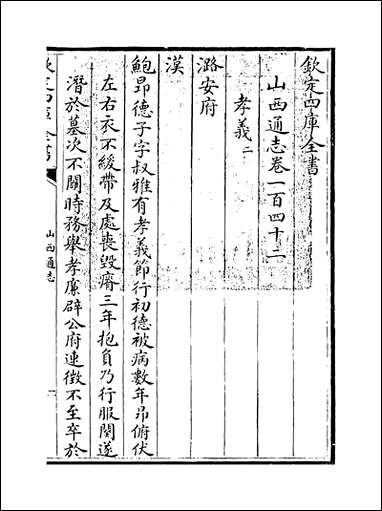 欽定四庫全書
山西通志卷一百四十二
孝義二
潞安府
漢
鮑昂德子字叔雅有孝義節行初德被病數年昂俯伏
左右衣不緩帶及處喪毀瘠三年抱負乃行服闋遂
潛於墓次不關時務舉孝廉辟公府連徵不至卒於
山西通志